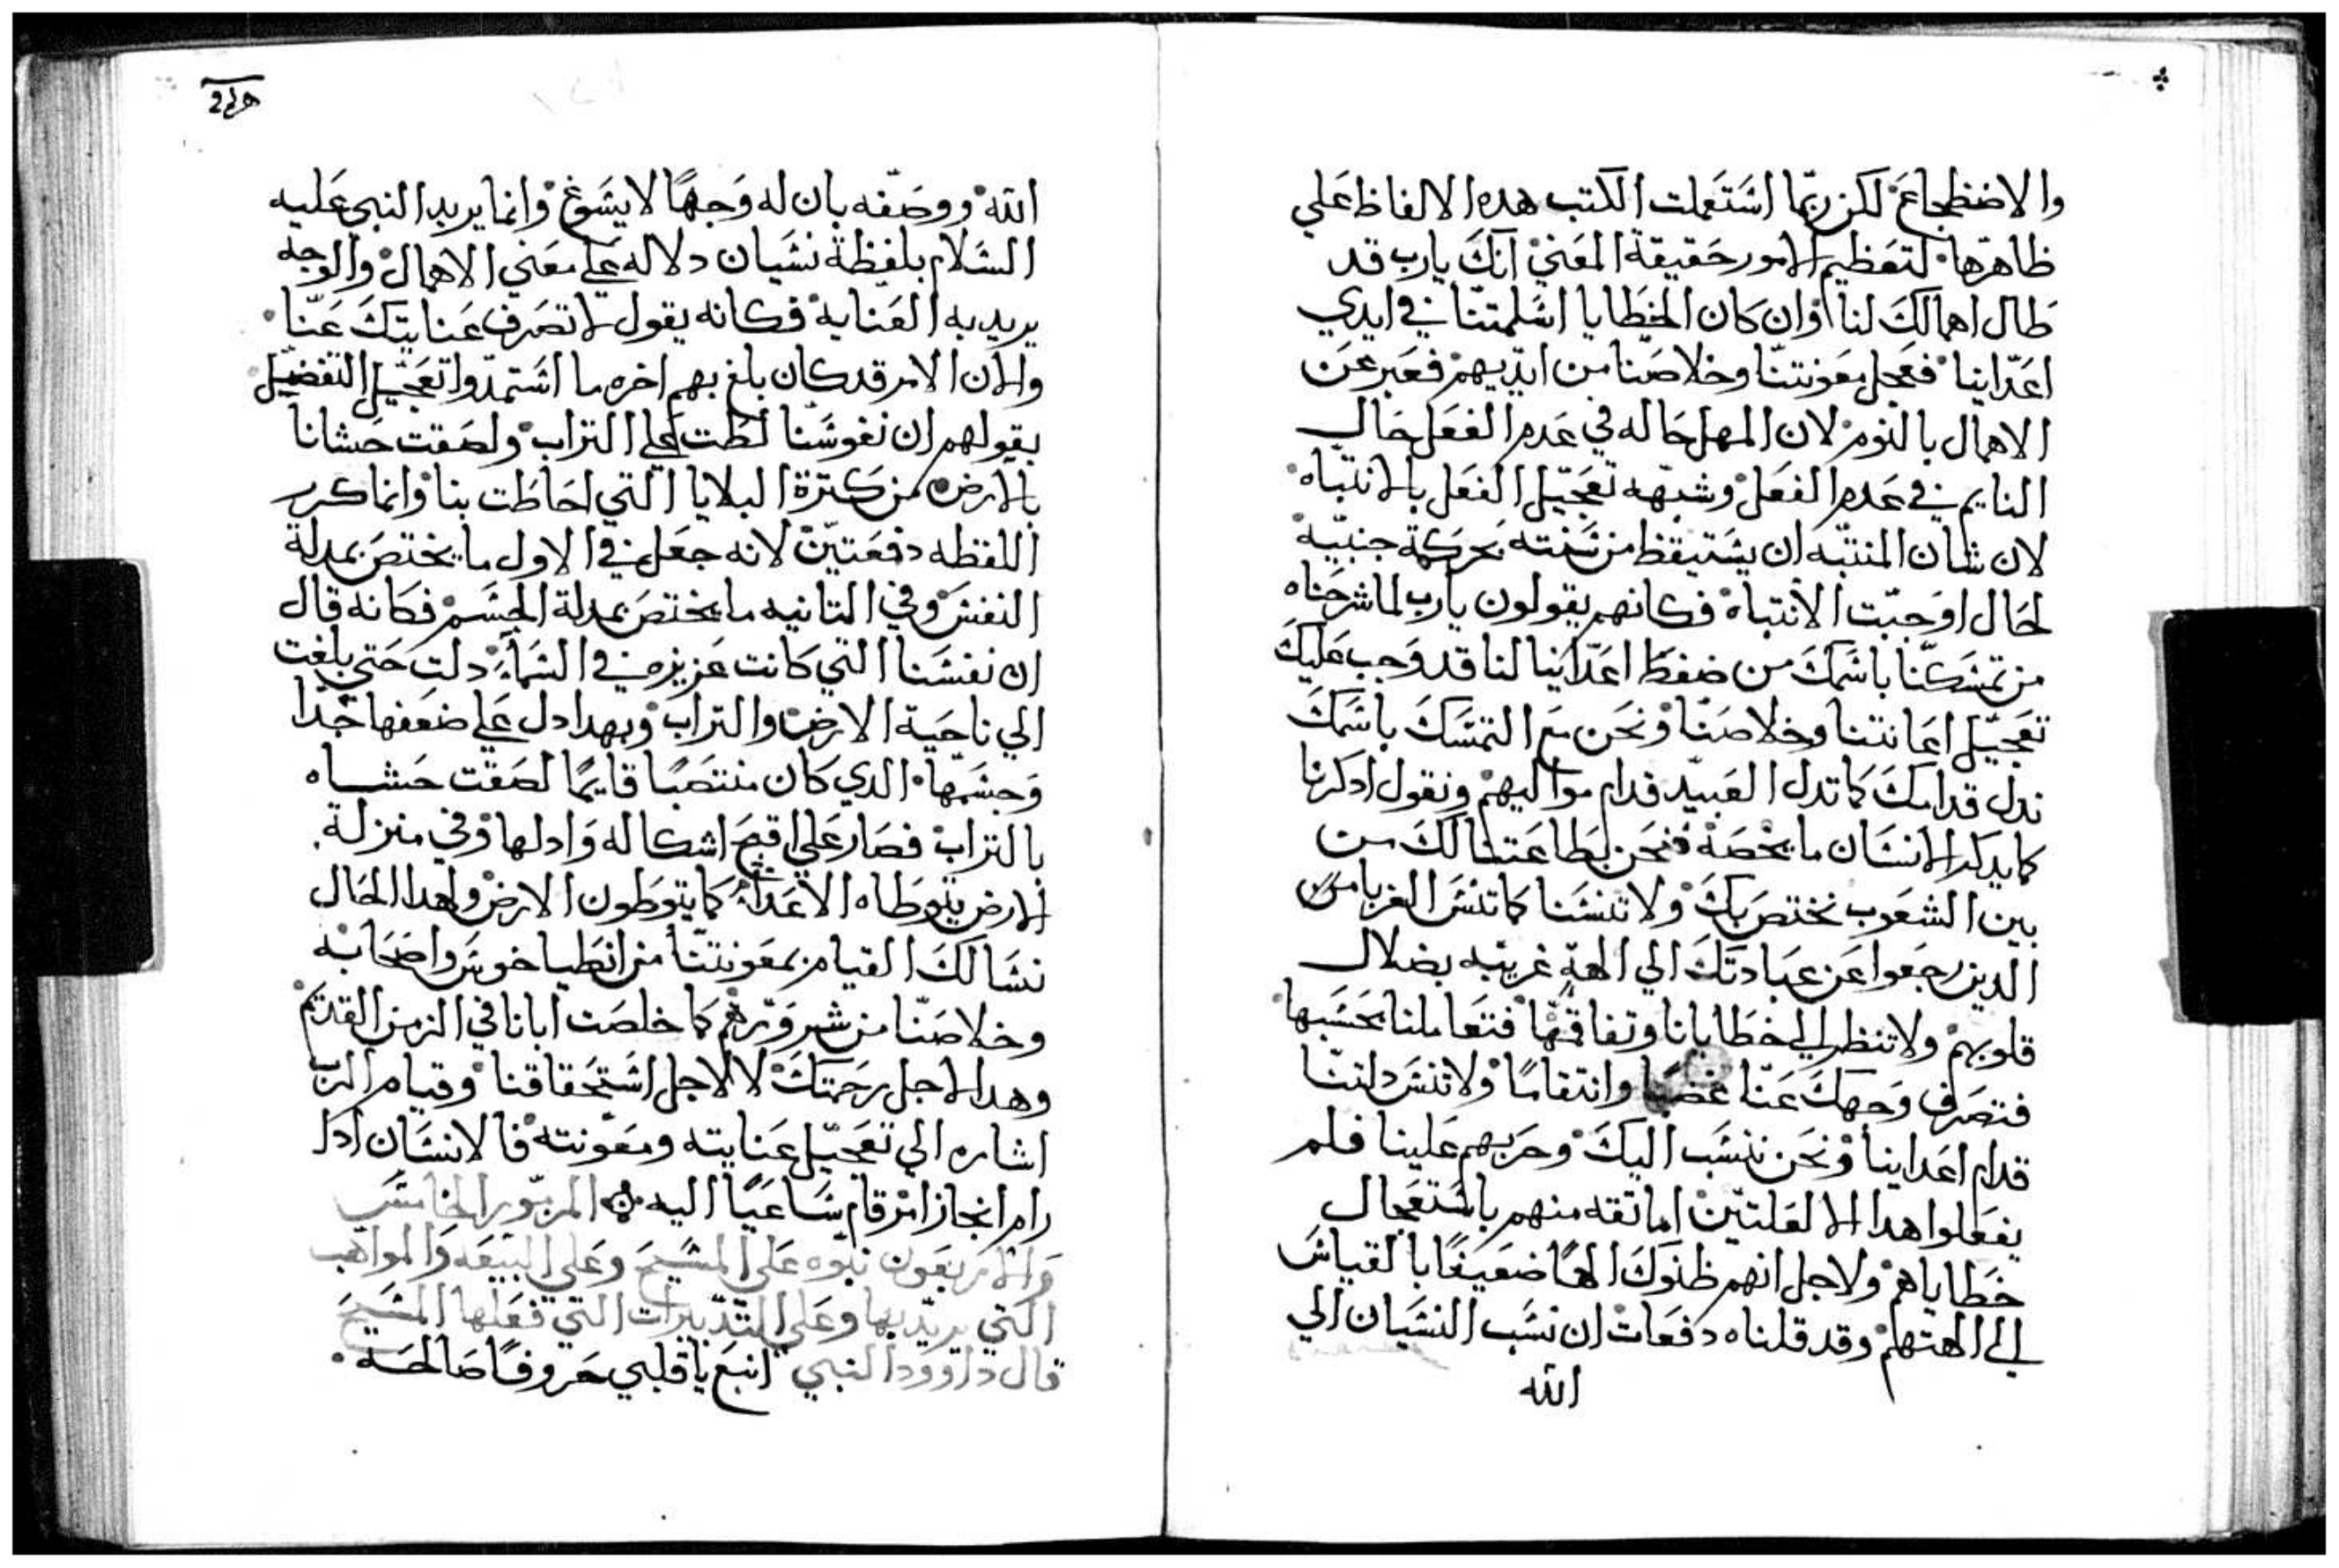 والاضطجاع لكن ربّما اشتَعملت الكتب هده الالفاظ عَلي
ظاهرها لتعَظيم الامور حَقيقة المعَني انكَ يارب قد
طال اهمالكَ لنا وان كان الخطايا اسَلمتنا في ايدي
اعَدّاينا فعَجل معَونتنا وخلاصَنا من ايدّيهم فعَبر عَن
الاهمال بالنوم لان المهل حَاله في عَدم الفعَل حَال
النايم في عَدم الفعَل وشبّهه تعَجيّل الفعَل بالانتباه
لان شان المنتبّه ان يسَتيقظ من سَنته بحَركة جنبيّه
لحَال اوجَبّت الانتباه فكانهم يقولون يارب لما شرحَناه
من تمسَكنّا باسَمكَ من ضغط اعَدّاينا لنا قد وَجب عَليكَ
تعَجيّل اعَانتنا وخلاصَنا ونحَن مع التمسَكَ باسَمكَ
ندل قدامكَ كما تدل العَبيّد قدام مواليهم ونقول ادكرنا
كما يدكر الانسَان ما يخصَه فنحَن بطاعَتنا لكَ من
بين الشعَوب نختصَ بكَ ولا تنسَنا كما تنسَ الغربا من
الدين رجعَوا عَن عبَادتكَ الي الهة غريبّه بضلال
قلوبهم ولا تنظر الي خطايانا وتفاقمها فتعَاملنا بحَسَبها
فتصَرف وَجهكَ عَنّا غضبًا وانتقامًا ولا تنسَ دلتنّا
قدام اعَداينا ونحَن ننسَب اليكَ وحَربهم عَلينا فلم
يفعَلوا هدا الا لعَلتيّن اما تقه منهم باستعَجال
خَطاياهم ولاجل انهم ظنوكَ الهًا ضعَيفًا بالقياسَ
الي الهتهم وقد قلناه دفعَات ان نسَب النسَيان الي
الله
الله ووصَفه بان له وَجهًا لا يسَوغ وانما يريد النبي عَليه
السَلام بلفظة نسَيان دلاله عَلي معَني الاهمال والوجه
يريد به العَنايه فكانه يقول لا تصَرف عَنايتكَ عَنّا
ولان الامر قد كان بلغ بهم اخره ما اسَتمدّوا تعَجيّل التفضيّل
بقولهم ان نفوسَنا لطت عَلي التراب ولصَقت حَشانا
بالارض من كترة البلايا التي احَاطت بنا وانما كرر
اللفظه دفعَتيّن لانه جعَل في الاول ما يختصَ بمدلة
النفسَ وفي التانيه ما يختصَ بمدلة الجسَم فكانه قال
ان نفسَنا التي كانت عَزيزه في السَمآء دلت حَتي بلغت
الي ناحَية الارض والتراب وبهدا دل عَلي ضعَفها جَدّا
وَجسَمها الدي كان منتصَبًا قايمًا لصَقت حَشاه
بالتراب فصَار عَلي اقبح اشكاله وَادلها وفي منزلة
الارض يتوطاه الاعَدآء كما يتوطون الارض ولهدا الحَال
نسَالكَ القيام بمعَونتنا من انطياخوسَ واصَحَابه
وخلاصَنّا من شروَرهم كما خلصَت ابانا في الزمن القديم
وهدا لاجل رحَمتكَ لا لاجل اسَتحَقاقنا وقيام الربّ
اشاره الي تعَجيّل عَنايته ومعَونته فالانسَان ادا
رام انجاز امر قام سَاعَيًا اليه المزمّور الخامسَ
وَالاربعَون نبّوه عَلي المسَيحَ وعَلي البيّعَه وَالمواهب
التي يريّد بها وعَلي التدّبيرات التي فعَلها المسَيحَ
قال داوود النبي انبَع يا قلبي حَروفًا صَالحَه